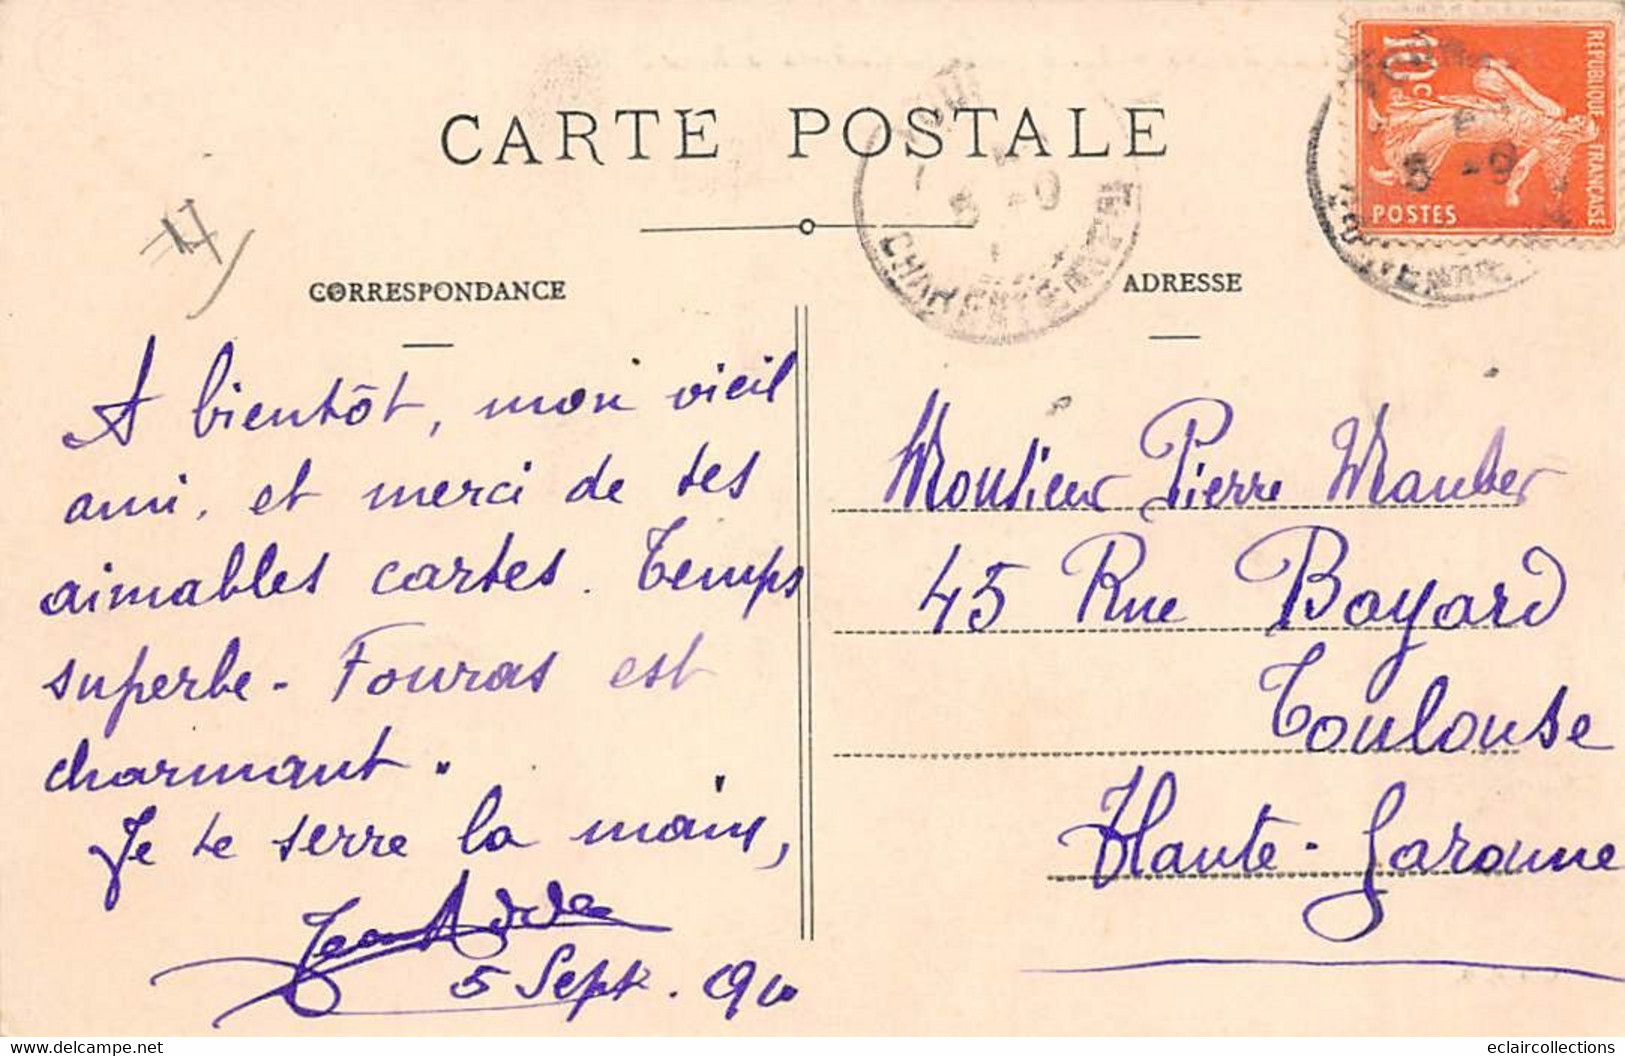 CARTE POSTALE
REPUBLIQUE FRANÇAISE
10c
POSTES
5 -9
CHARENTE INFRE
5 -9
CORRESPONDANCE
A bientôt, mon vieil
ami, et merci de tes
aimables cartes. Temps
superbe - Fouras est
charmant.
Je te serre la main,
5 Sept. 910
ADRESSE
Monsieur Pierre Mauber
45 Rue Bayard
Toulouse
Haute-Garonne
www.delcampe.net
eclaircollections